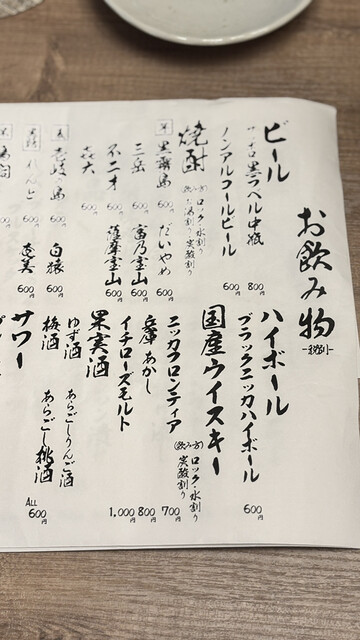 お飲み物
-税別-
ビール
サッポロ黒ラベル中瓶
800円
ノンアルコールビール
600円
焼酎
(飲み方)ロック・水割り
お湯割り・炭酸割り
芋
黒霧島
600円
だいやめ
600円
三岳
600円
富乃宝山
600円
不二才
600円
薩摩宝山
600円
㐂六
600円
麦
壱岐の島
600円
白猿
600円
れんと
600円
奄美
600円
ハイボール
ブラックニッカハイボール
600円
国産ウイスキー
(飲み方)ロック・水割り
炭酸割り
ニッカフロンティア
700円
兵庫 あかし
800円
イチローズモルト
1,000円
果実酒
ゆず酒
あらごしりんご酒
梅酒
あらごし桃酒
ALL
600円
サワー